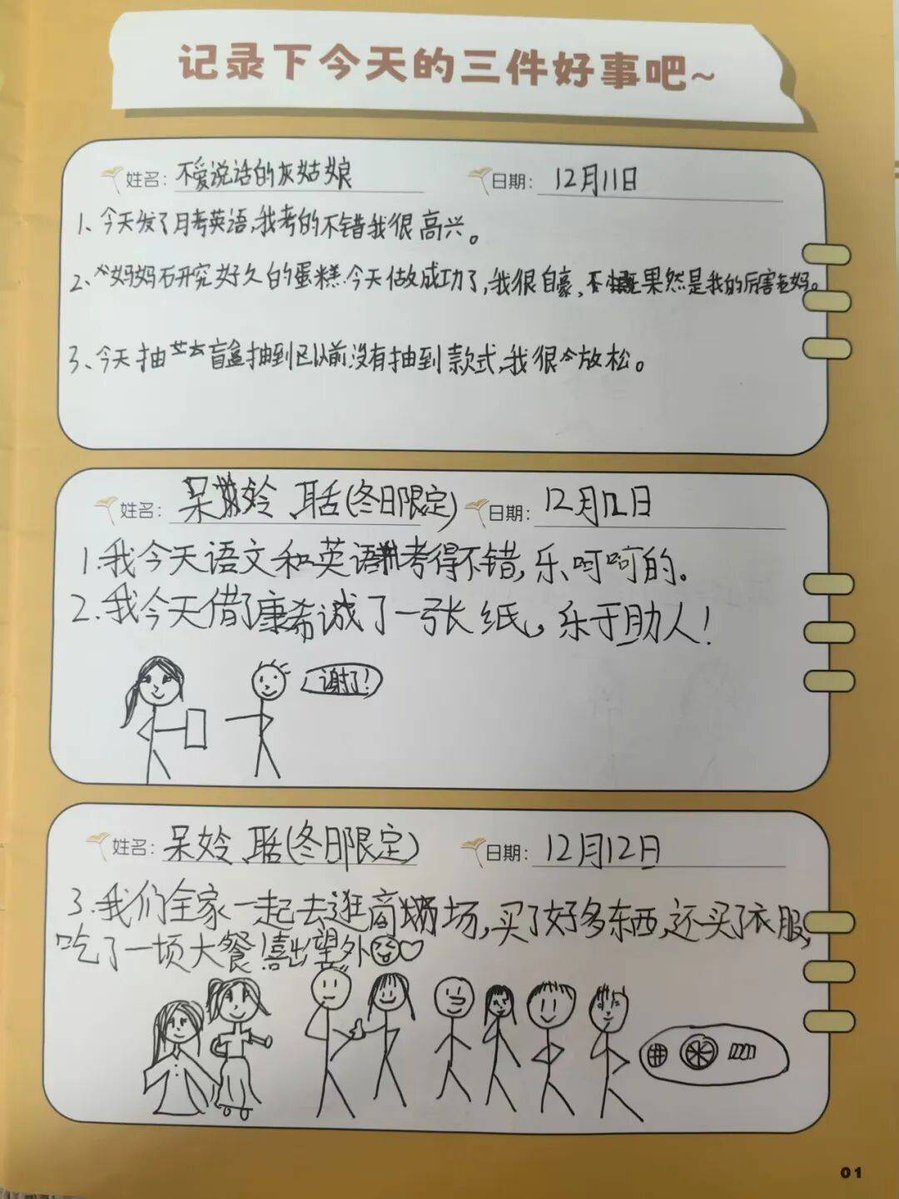 记录下今天的三件好事吧~
姓名: 不爱说话的灰姑娘 日期: 12月11日
1、今天发了月考英语,我考的不错我很高兴。
2、妈妈研究好久的蛋糕今天做成功了,我很自豪、果然是我的厉害老妈。
3、今天抽盲盒抽到已以前没有抽到款式,我很放松。
姓名: 呆姈聒(冬日限定) 日期: 12月12日
1.我今天语文和英语考得不错,乐呵呵的。
2.我今天借了康希诚了一张纸,乐于助人!
谢了!
姓名: 呆姈聒(冬日限定) 日期: 12月12日
3.我们全家一起去逛商场,买了好多东西,还买了衣服,
吃了一顿大餐!喜出望外
01